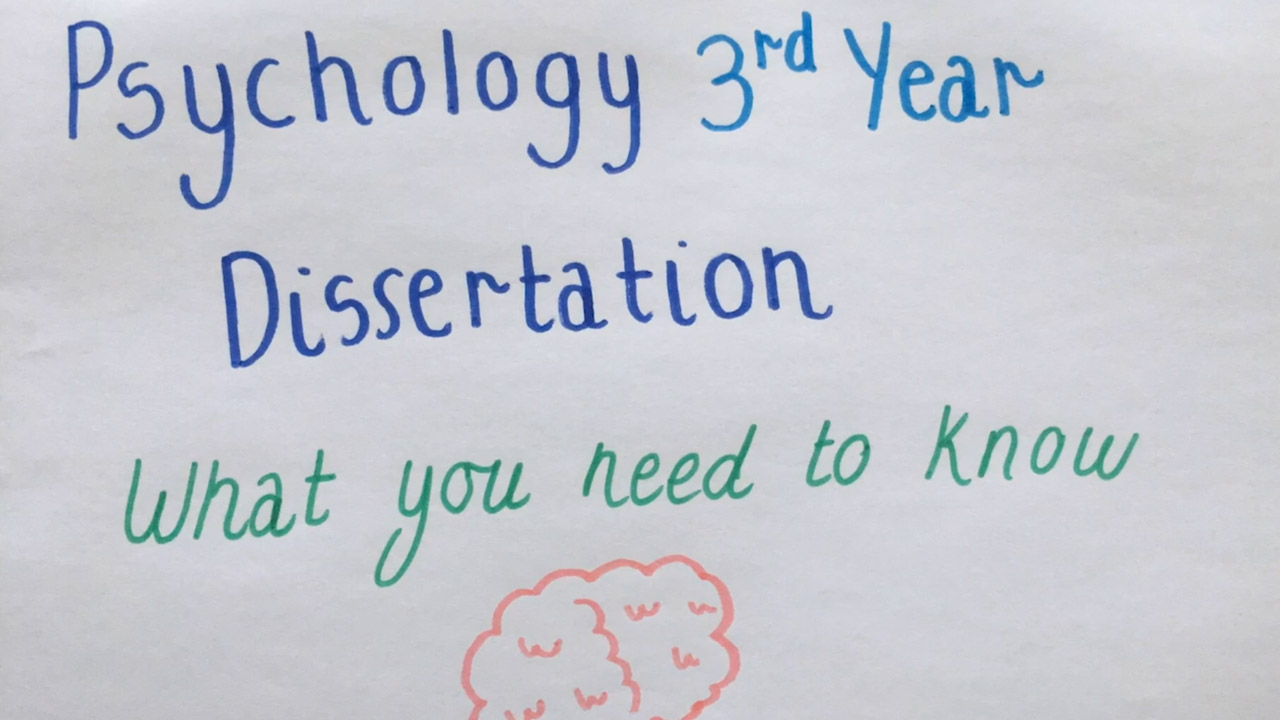 Psychology 3rd Year
Dissertation
What you need to know